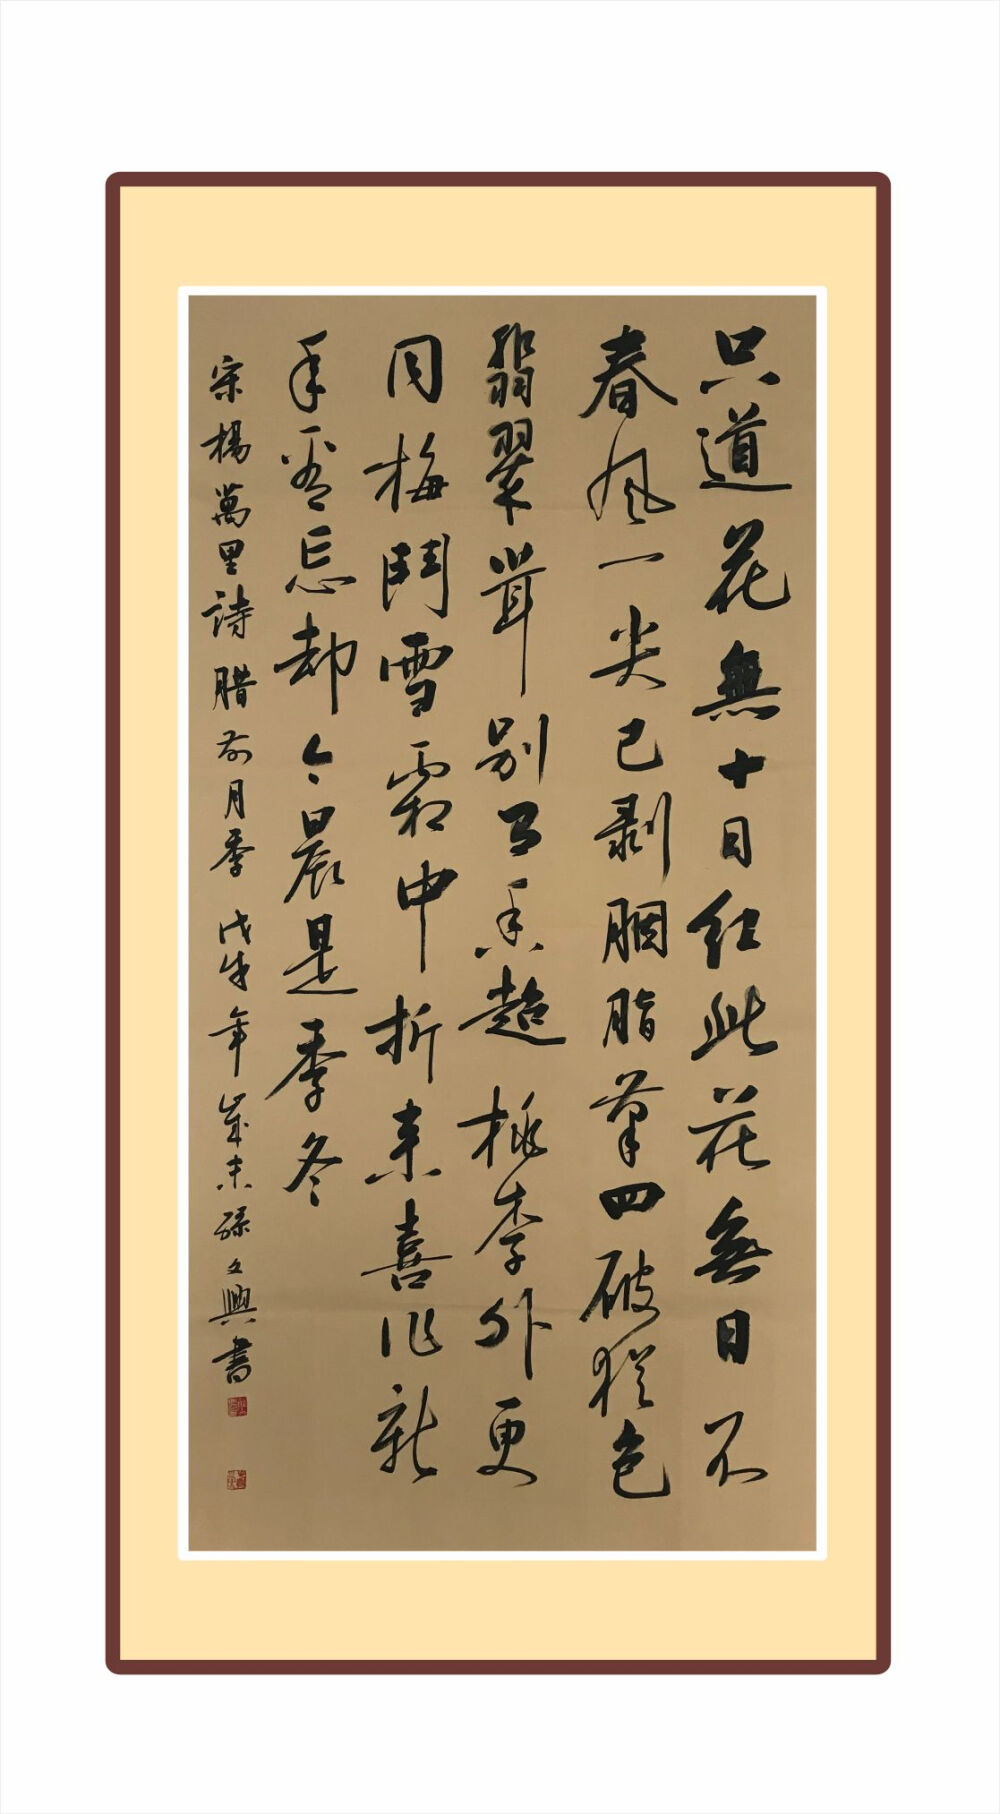 只道花無十日红此花無日不
春風一尖已剥胭脂筆四破猶包
翡翠茸別有香超桃李外更
同梅鬥雪霜中折来喜作新
年看忘却今晨是季冬
宋楊萬里詩腊前月季 戊戌年歲末孫文興書